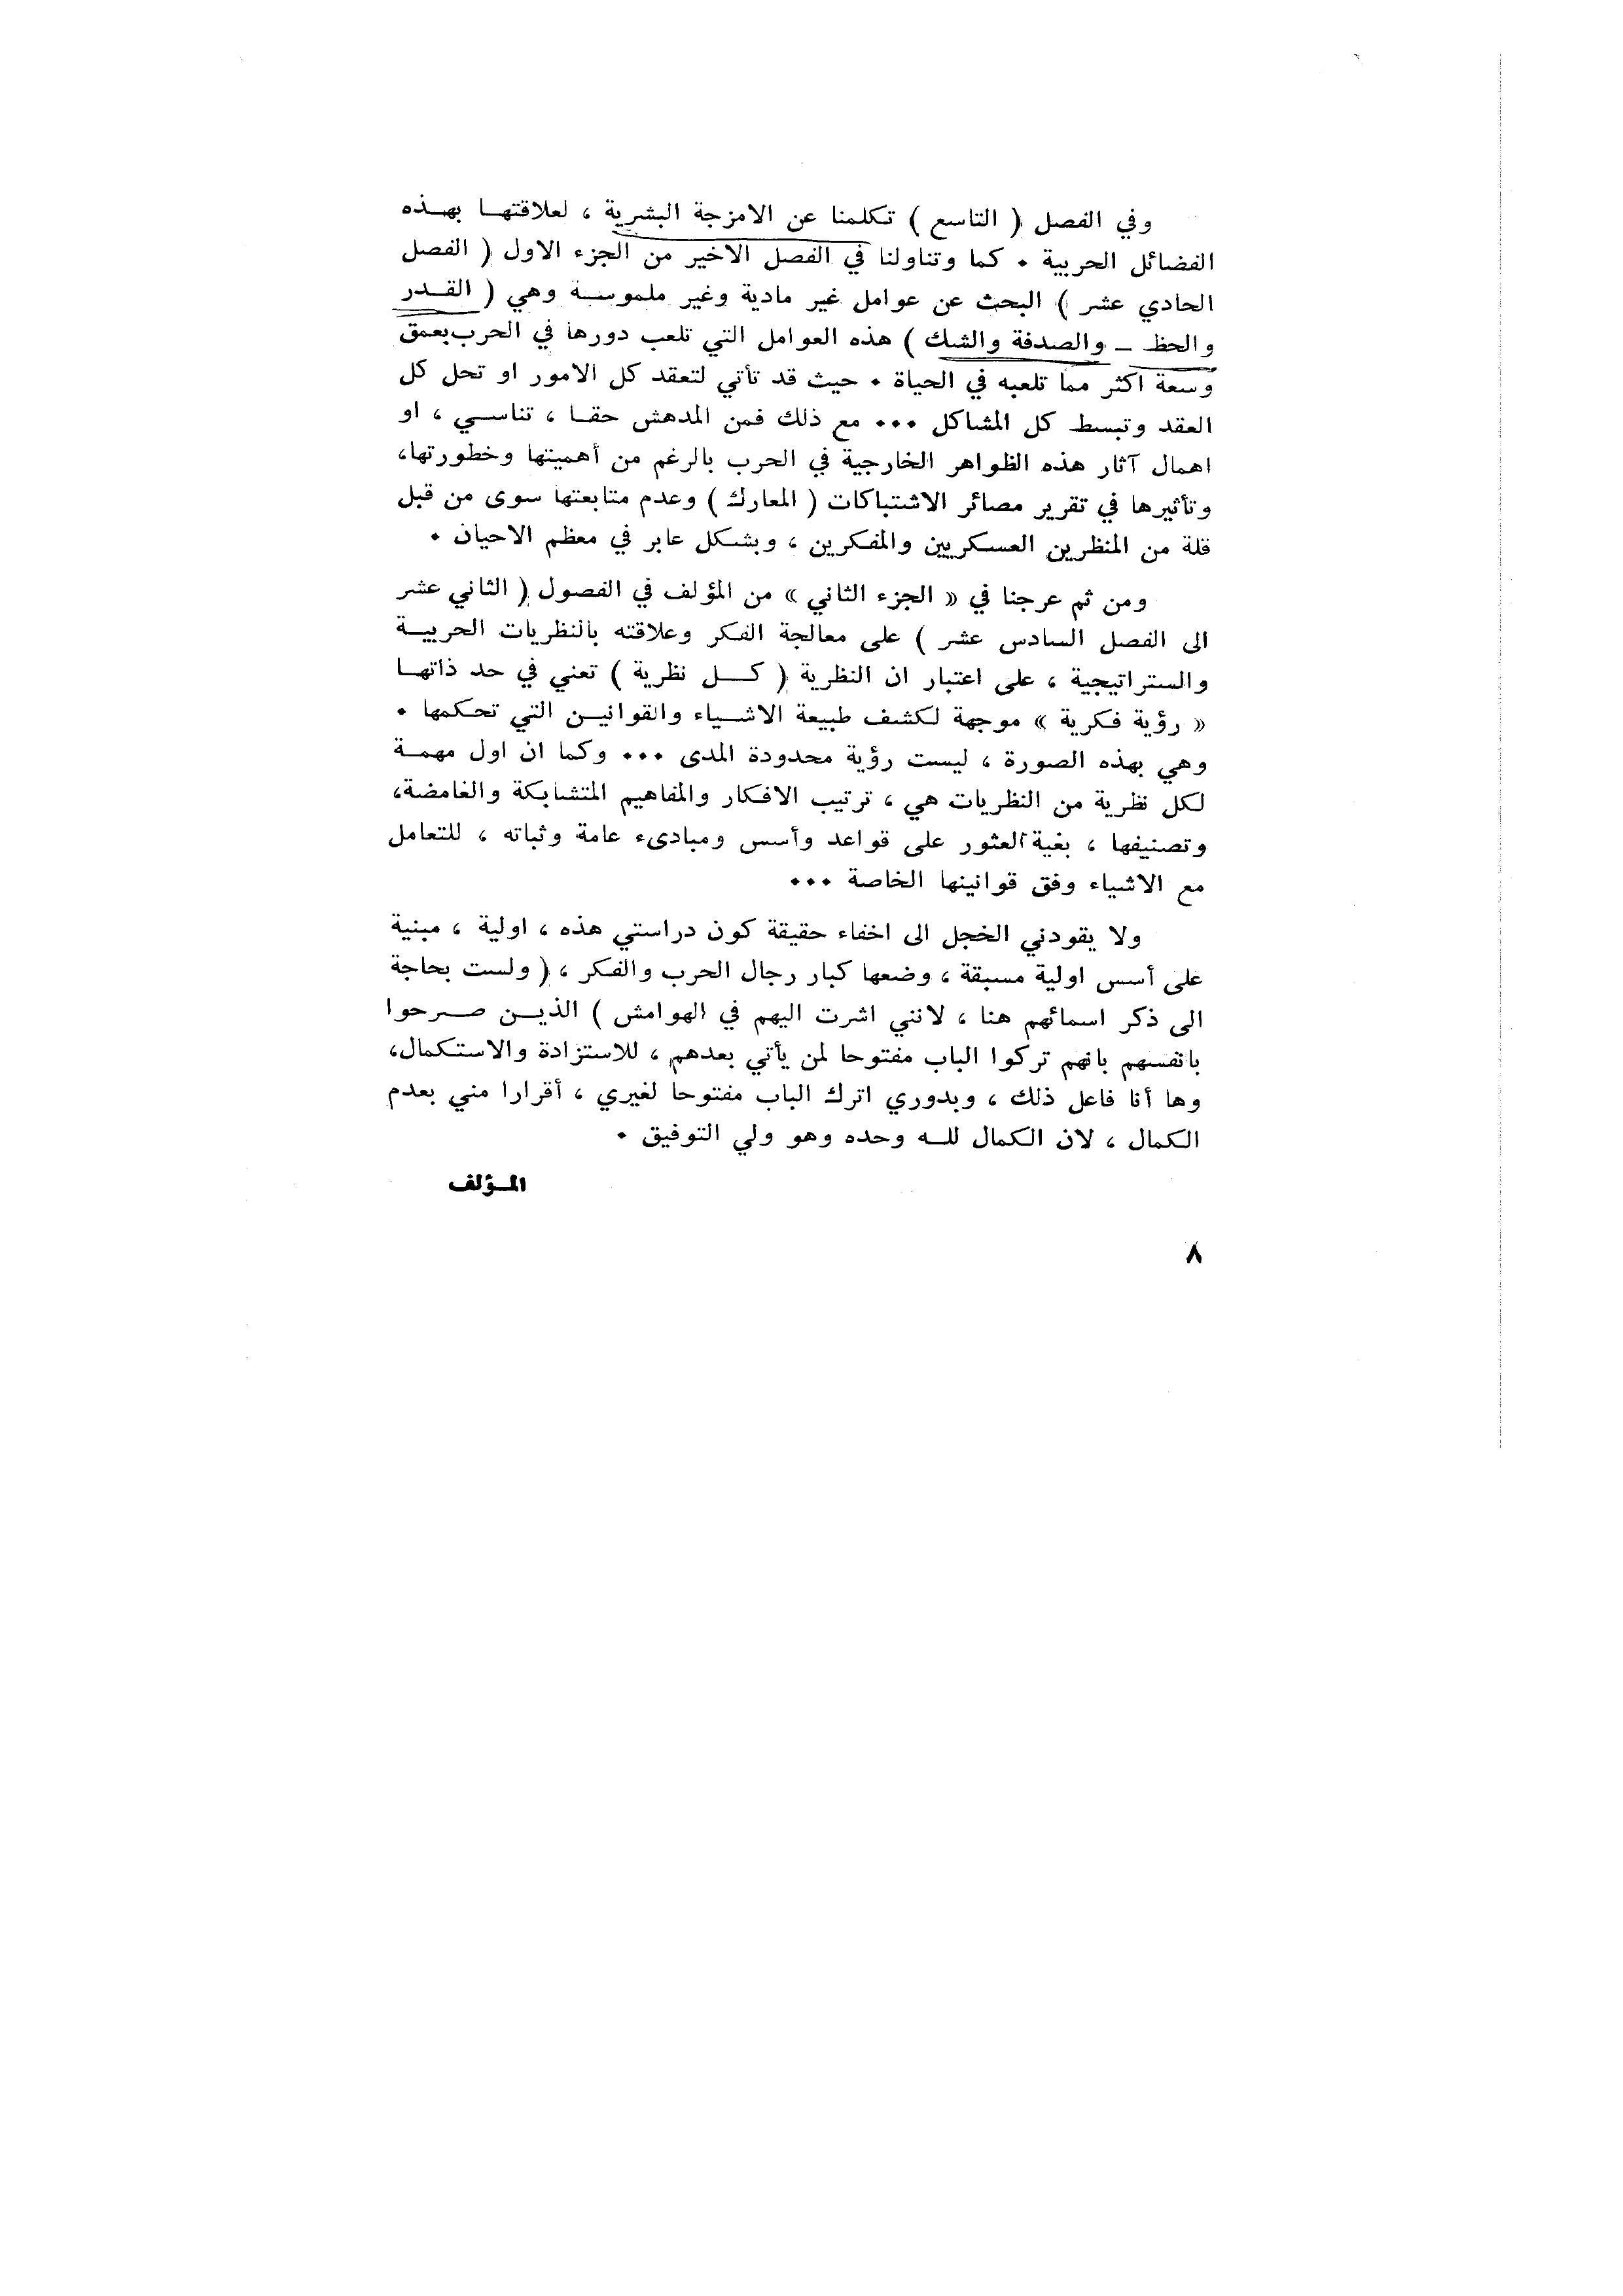 وفي الفصل ( التاسع ) تكلمنا عن الامزجة البشرية ، لعلاقتهـا بهـذه
الفضائل الحربية ٠ كما وتناولنا في الفصل الاخير من الجزء الاول ( الفصل
الحادي عشر ) البحث عن عوامل غير مادية وغير ملموسـة وهي ( القـدر
والحظ ـ والصدفة والشك ) هذه العوامل التي تلعب دورها في الحرب بعمق
وسعة اكثر مما تلعبه في الحياة ٠ حيث قد تأتي لتعقد كل الامور او تحل كل
العقد وتبسط كل المشاكل ٠٠٠ مع ذلك فمن المدهش حقـا ، تناسـي ، او
اهمال آثار هذه الظواهر الخارجية في الحرب بالرغم من أهميتها وخطورتها،
وتأثيرها في تقرير مصائر الاشتباكات ( المعارك ) وعدم متابعتها سوى من قبل
قلة من المنظرين العسكريين والمفكرين ، وبشكل عابر في معظم الاحيان ٠
ومن ثم عرجنا في « الجزء الثاني » من المؤلف في الفصول ( الثاني عشر
الى الفصل السادس عشر ) على معالجة الفكر وعلاقته بالنظريات الحربيـة
والستراتيجية ، على اعتبار ان النظرية ( كــل نظرية ) تعني في حد ذاتهـا
« رؤية فكرية » موجهة لكشف طبيعة الاشـياء والقوانيـن التي تحكمها ٠
وهي بهذه الصورة ، ليست رؤية محدودة المدى ٠٠٠ وكما ان اول مهمـة
لكل نظرية من النظريات هي ، ترتيب الافكار والمفاهيم المتشابكة والغامضة،
وتصنيفها ، بغية العثور على قواعد وأسس ومبادىء عامة وثباته ، للتعامل
مع الاشياء وفق قوانينها الخاصة ٠٠٠
ولا يقودني الخجل الى اخفاء حقيقة كون دراستي هذه ، اولية ، مبنية
على أسس اولية مسبقة ، وضعها كبار رجال الحرب والفكر ، ( ولست بحاجة
الى ذكر اسمائهم هنا ، لانني اشرت اليهم في الهوامش ) الذيـن صـرحوا
بانفسهم بانهم تركوا الباب مفتوحا لمن يأتي بعدهم ، للاستزادة والاستكمال،
وها أنا فاعل ذلك ، وبدوري اترك الباب مفتوحا لغيري ، أقرارا مني بعدم
الكمال ، لان الكمال للـه وحده وهو ولي التوفيق ٠
المـؤلف
٨